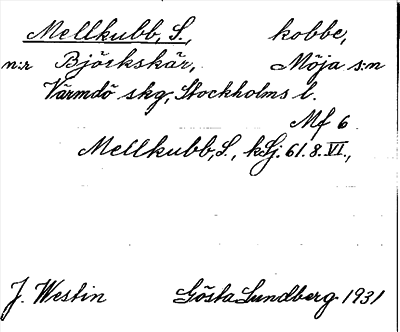 Mellkubb, S., kobbe,
n:r Björkskär, Möja s:n
Värmdö skg, Stockholms l.
Mf 6
Mellkubb, S., kSj. 61.8.VI.,
J. Westin Gösta Lundberg 1931